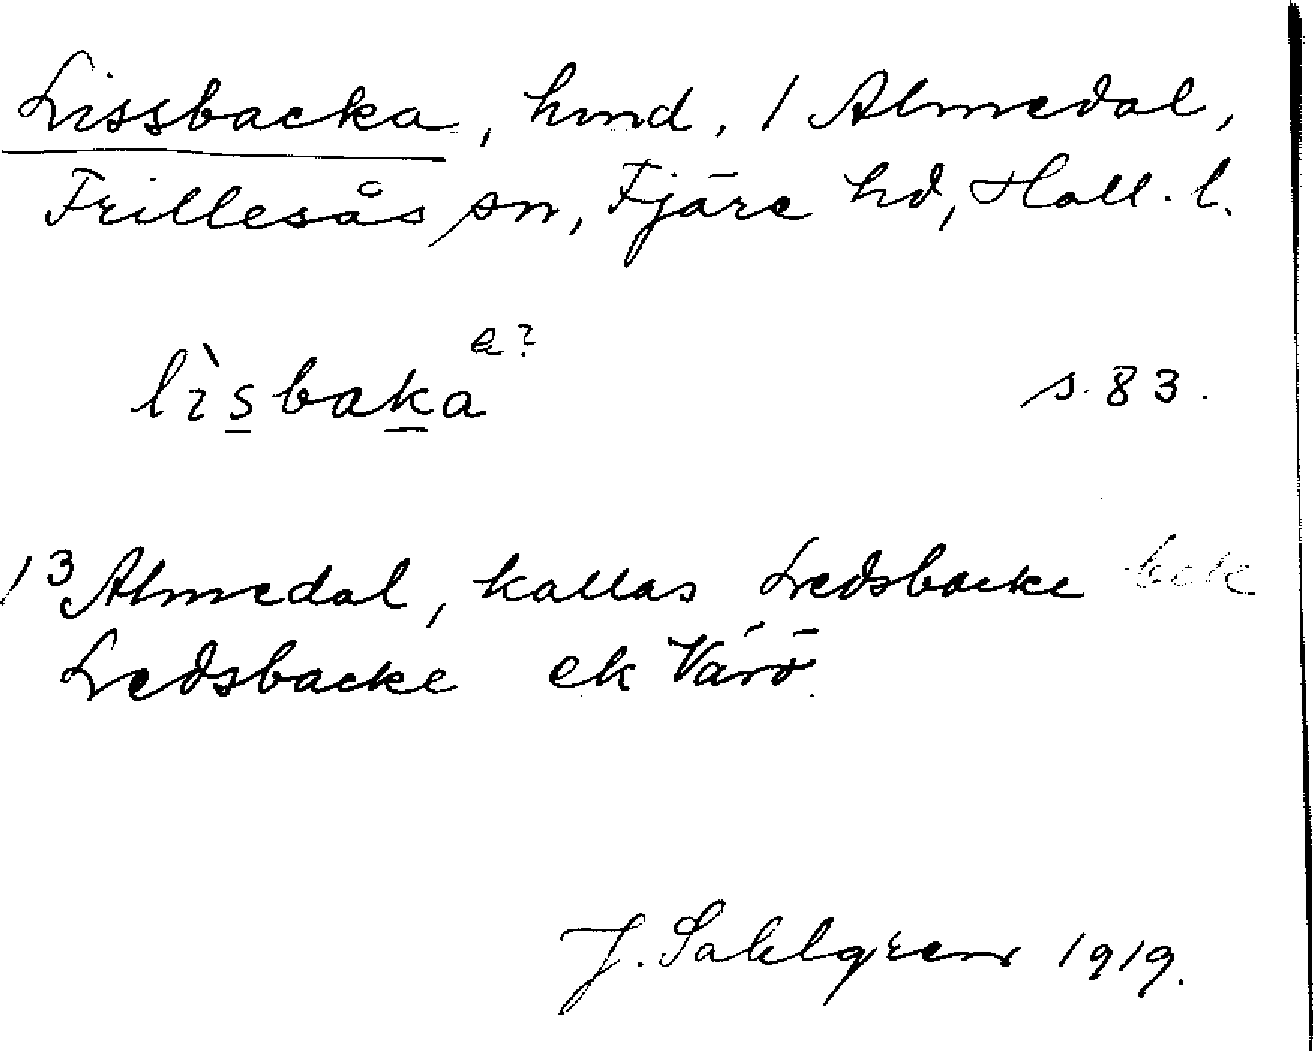 Lissbacka, hmd. / Almedal,
Frillesås sn, Fjäre hd, Hall. l.
a?
lìsbaka s. 83.
13 Almedal, kallas Ledsbacke bek
Ledsbacke ek Värö.
J. Sahlgren 1919.